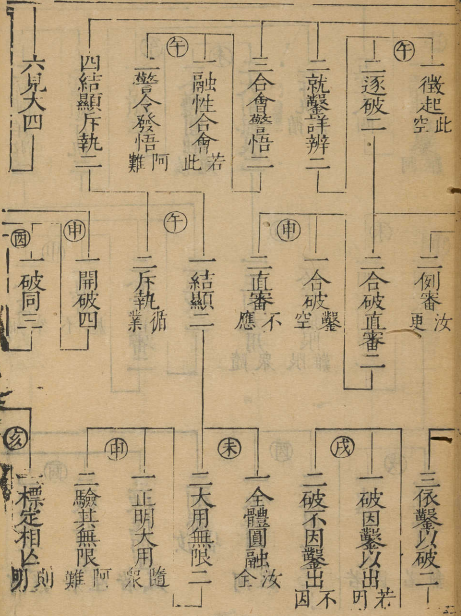 午
一徵起此空
二逐破二
二就鑿詳辨二
三合會警悟二
午
一融性合會若此
二警令發悟阿難
四結顯斥執二
六見大四
二例審汝更
二合破直審二
申
一合破鑿空
二直審不應
午
一結顯二
二斥執循業
申
一開破四
酉
一破同三
三依鑿以破二
戌
一破因鑿以出若因
二破不因鑿出不因
未
一全體圓融汝全
二大用無限二
申
一正明大用隨眾
二驗其無限阿難
亥
標定相亾則明